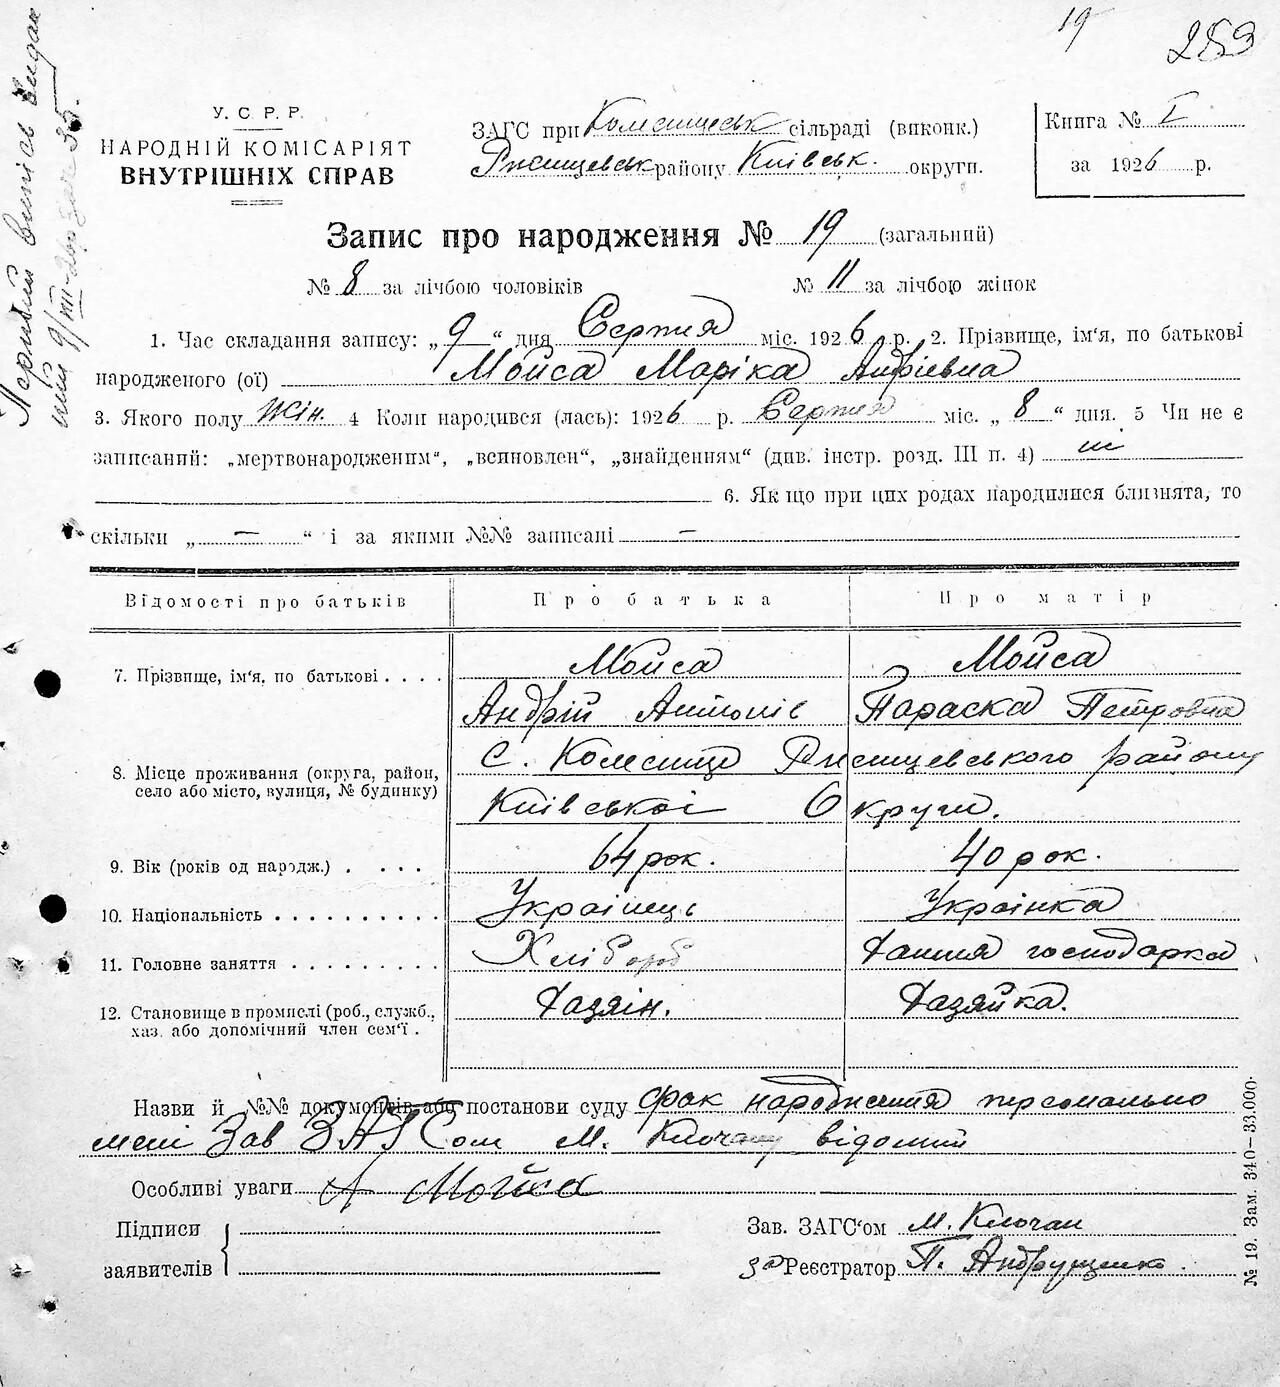 19
253
Первий випис видан
У. С. Р. Р.
НАРОДНІЙ КОМІСАРІЯТ
ВНУТРІШНІХ СПРАВ
ЗАГС при сільраді (виконк.)
Ржищевськ району Київськ. округи.
Книга № I
за 1926 р.
Запис про народження № 19 (загальний)
№ 8 за лічбою чоловіків № 11 за лічбою жінок
1. Час складання запису: „ 9 “ дня Серпня міс. 1926 р. 2. Прізвище, ім'я, по батькові
народженого (ої) Мойса Маріка Андріевна
3. Якого полу Жін. 4 Коли народився (лась): 1926 р. Серпня міс. „ 8 “ дня. 5 Чи не є
записаний: „мертвонародженим“, „всиновлен“, „знайденням“ (див. інстр. розд. III п. 4) ні
6. Якщо при цих родах народилися близнята, то
скільки „ — “ і за якими №№ записані —
Відомості про батьків Про батька Про матір
7. Прізвище, ім'я, по батькові . . . . Мойса Мойса
Андрій Антонів Параска Петровна
8. Місце проживання (округа, район,
село або місто, вулиця, № будинку)
с. Ржищевського району
Київської Округи.
9. Вік (років од народж.) . . . . . 64 рок. 40 рок.
10. Національність . . . . . . . . . . Українець Українка
11. Головне заняття . . . . . . . . . Хлібороб господарка
12. Становище в промислі (роб., служб.,
хаз. або допомічний член сем'ї . Хазяін. Хазяйка.
Назви й №№ документів або постанови суду фак народження персонально
мені Зав ЗАГСом М. Клочану відомий
Особливі уваги А Мойса
Підписи
заявителів
Зав. ЗАГС'ом М. Клочан
за Реєстратор П. Андрущенко.
№ 19. Зам. 340—33.000.